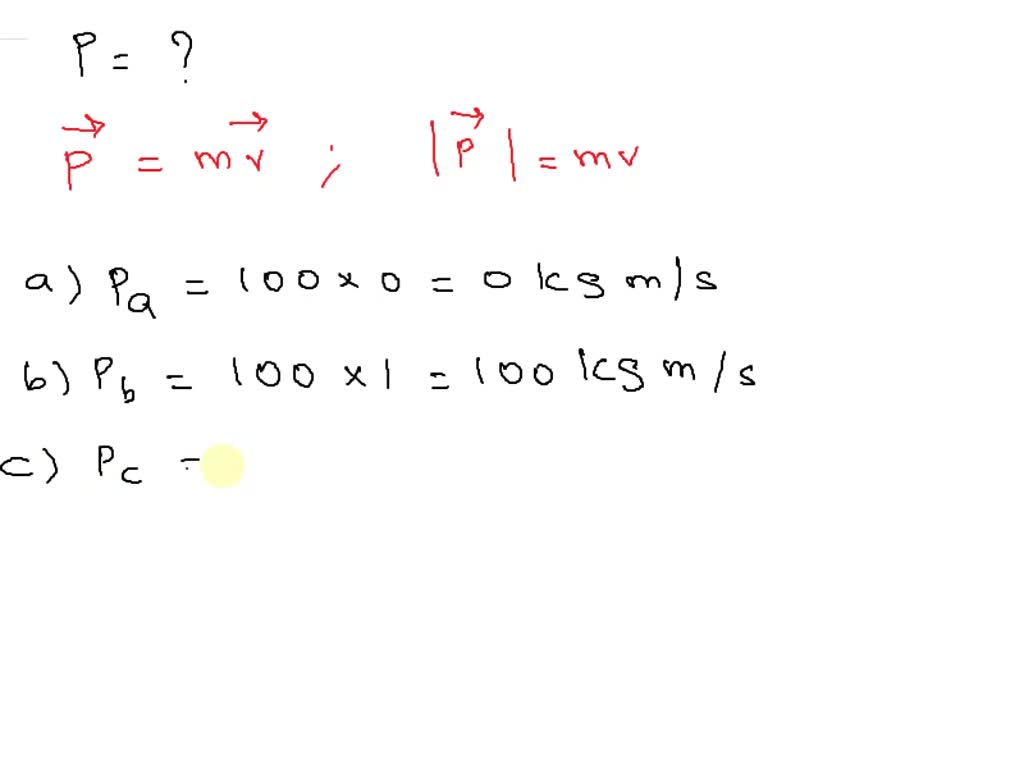 P = ?
P⃗ = mv⃗ ; |P⃗| = mv
a) Pa = 100 × 0 = 0 kg m/s
b) Pb = 100 × 1 = 100 kg m/s
c) Pc =